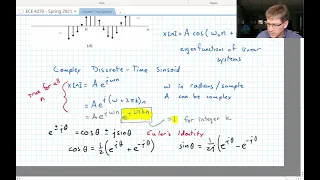 ECE 4270 - Spring 2021
x[n] = A cos(ω₀n
(d)
eigenfunction of linear
systems
Complex Discrete-Time Sinusoid
True for all n
x[n] = A e^{jωn}
ω in radians/sample
= A e^{j(ω+2πk)n}
A can be complex
= A e^{jωn} e^{j2πkn}
= 1 for integer k
e^{±jθ} = cosθ ± j sinθ
Euler's Identity
cosθ = 1/2 (e^{jθ} + e^{-jθ})
sinθ = 1/2j (e^{jθ} - e^{-jθ}